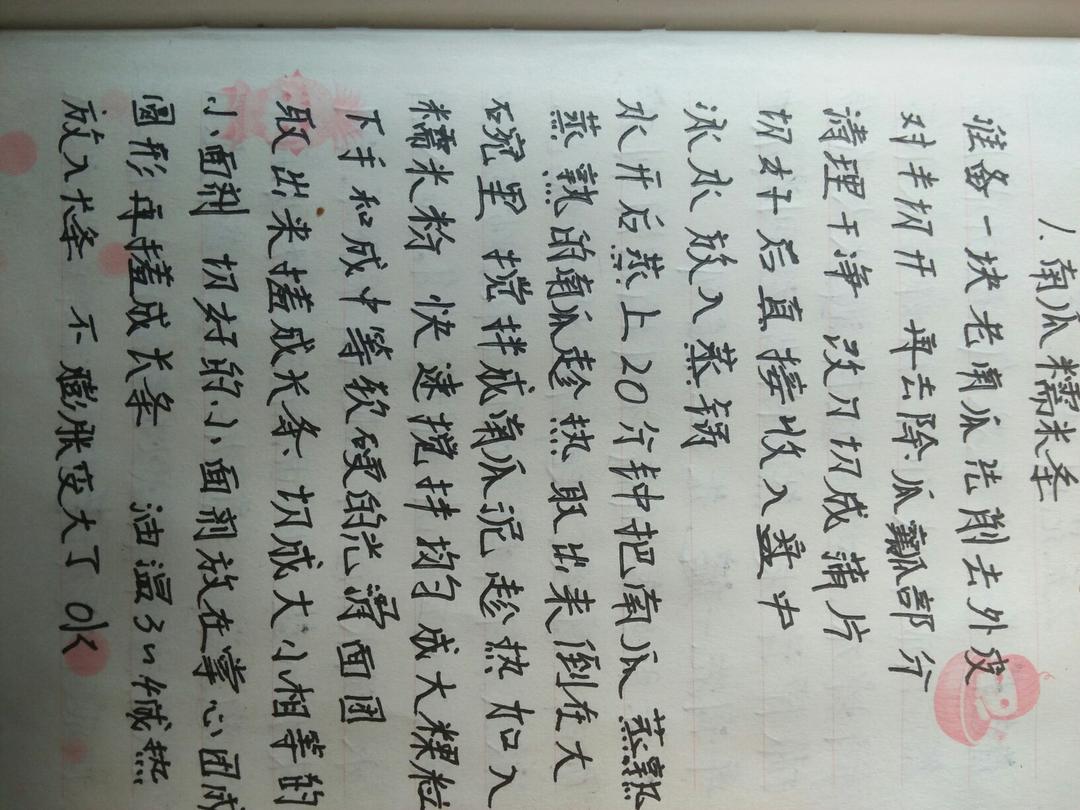 1.南瓜糯米季
准备一块老南瓜先削去外皮
对半切开 再去除瓜瓤部分
清理干净 改刀切成薄片
切好后直接收入盘中
水放入蒸锅
水开后蒸上20分钟把南瓜蒸熟
蒸熟的南瓜趁热取出来倒在大
碗里 搅拌成南瓜泥趁热加入
糯米粉 快速搅拌均匀成大粿粒
下手和成中等软硬的光滑面团
取出来搓成长条 切成大小相等的
小面剂 切好的小面剂放在掌心团成
圆形再搓成长条 油温3n4成热
放入长条 不膨胀变大了OK